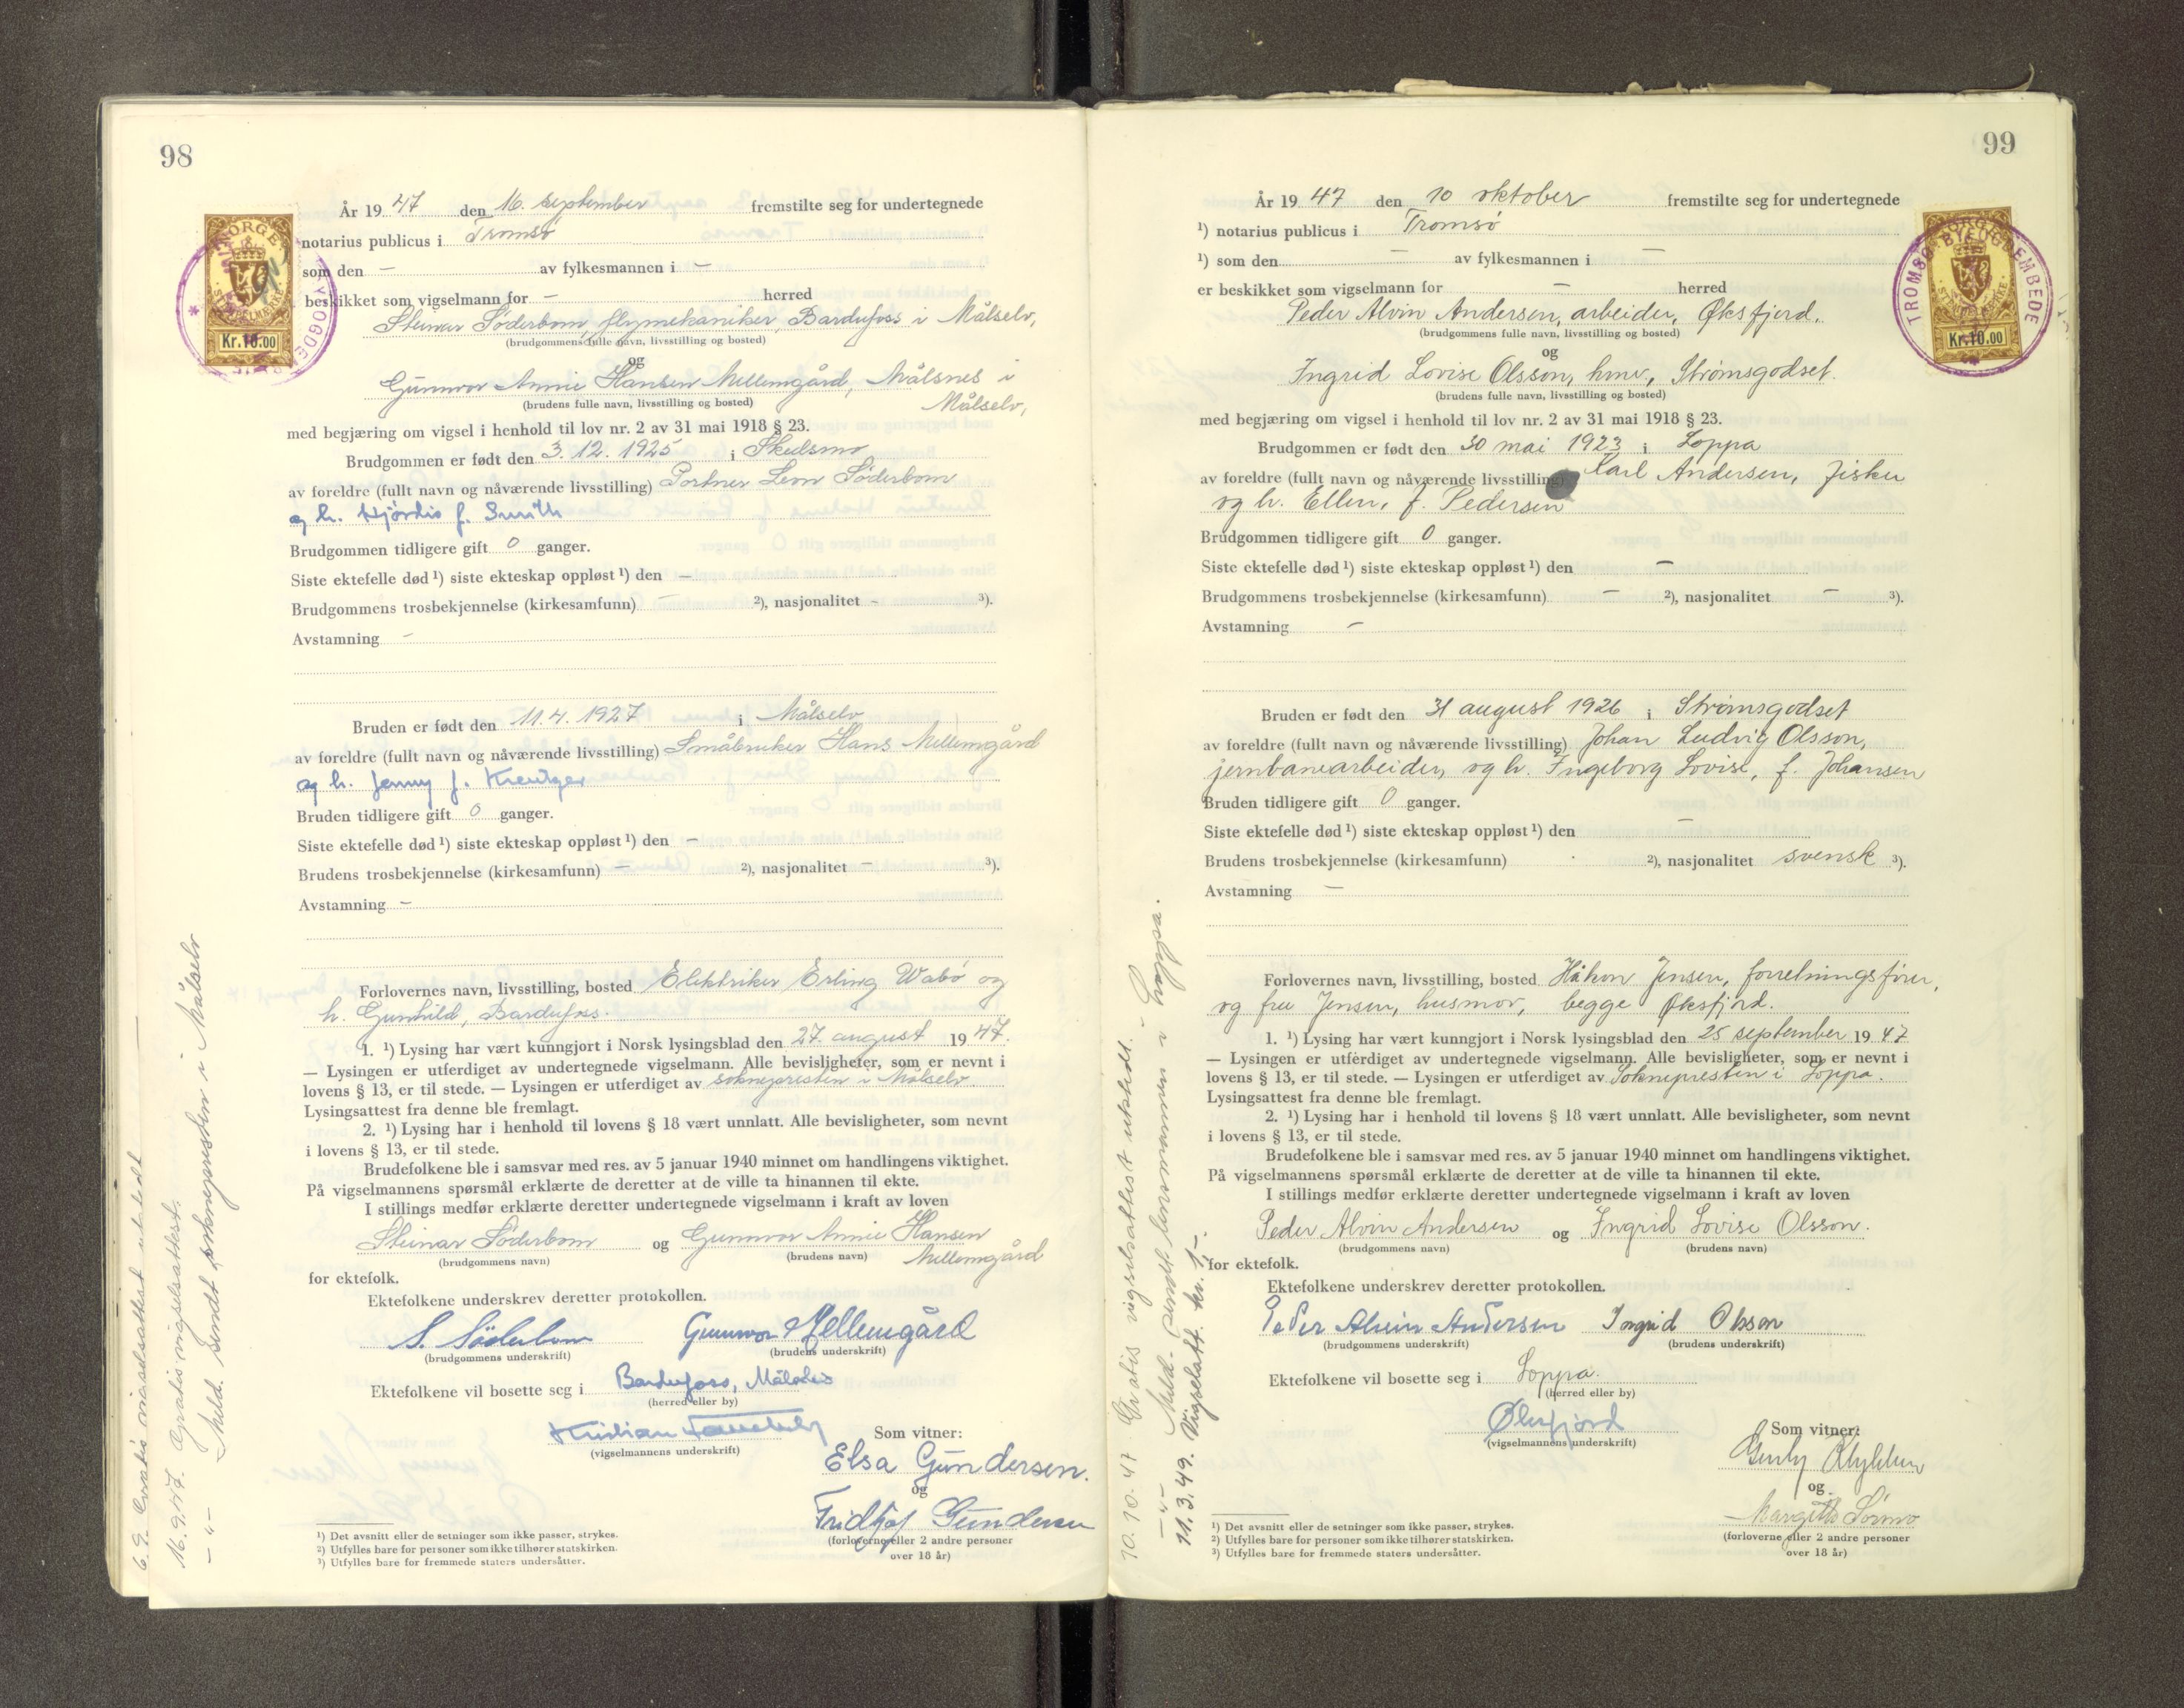 98
År 1947 den 16. september fremstilte seg for undertegnede
notarius publicus i Tromsø
som den – av fylkesmannen i –
beskikket som vigselmann for – herred
Steinar Söderbom, flymekaniker, Bardufoss i Målselv,
(brudgommens fulle navn, livsstilling og bosted)
og
Gunnvor Annie Hansen Mellemgård, Målsnes i
Målselv,
(brudens fulle navn, livsstilling og bosted)
med begjæring om vigsel i henhold til lov nr. 2 av 31 mai 1918 § 23.
Brudgommen er født den 3. 12. 1925 i Skulsmo
av foreldre (fullt navn og nåværende livsstilling) Portner Leon Söderbom
og h. Hjördis f. Smith
Brudgommen tidligere gift 0 ganger.
Siste ektefelle død ¹) siste ekteskap oppløst ¹) den –
Brudgommens trosbekjennelse (kirkesamfunn) – ²), nasjonalitet – ³).
Avstamning –
Bruden er født den 11.4. 1927 i Målselv
av foreldre (fullt navn og nåværende livsstilling) Småbruker Hans Mellemgård
og h. Jenny f. Kreutzer
Bruden tidligere gift 0 ganger.
Siste ektefelle død ¹) siste ekteskap oppløst ¹) den –
Brudens trosbekjennelse (kirkesamfunn) – ²), nasjonalitet – ³).
Avstamning –
Forlovernes navn, livsstilling, bosted Elektriker Erling Wabö og
h. Gunhild, Bardufoss.
1. ¹) Lysing har vært kunngjort i Norsk lysingsblad den 27. august 1947.
— Lysingen er utferdiget av undertegnede vigselmann. Alle bevisligheter, som er nevnt i
lovens § 13, er til stede. — Lysingen er utferdiget av soknepresten i Målselv.
Lysingsattest fra denne ble fremlagt.
2. ¹) Lysing har i henhold til lovens § 18 vært unnlatt. Alle bevisligheter, som nevnt
i lovens § 13, er til stede.
Brudefolkene ble i samsvar med res. av 5 januar 1940 minnet om handlingens viktighet.
På vigselmannens spørsmål erklærte de deretter at de ville ta hinannen til ekte.
I stillings medfør erklærte deretter undertegnede vigselmann i kraft av loven
Steinar Söderbom og Gunnvor Annie Hansen
Mellemgård
(brudgommens navn) (brudens navn)
for ektefolk.
Ektefolkene underskrev deretter protokollen.
S. Söderbom Gunnvor Mellemgård
(brudgommens underskrift) (brudens underskrift)
Ektefolkene vil bosette seg i Bardufoss, Målselv
(herred eller by)
Kristian
(vigselmannens underskrift)
Som vitner:
Elsa Gundersen.
og
Fridtjof Gundersen
(forloverne eller 2 andre personer
over 18 år)
¹) Det avsnitt eller de setninger som ikke passer, strykes.
²) Utfylles bare for personer som ikke tilhører statskirken.
³) Utfylles bare for fremmede staters undersåtter.
16.9.47. Gratis vigselsattest.
– " – Meld. sendt soknepresten i Målselv
NORGE
STEMPELMERKE
Kr. 10.00
99
År 1947 den 10 oktober fremstilte seg for undertegnede
¹) notarius publicus i Tromsø
¹) som den – av fylkesmannen i –
er beskikket som vigselmann for – herred
Peder Alvin Andersen, arbeider, Øksfjord.
(brudgommens fulle navn, livsstilling og bosted)
og
Ingrid Lovise Olsson, hmv, Strømsgodset.
(brudens fulle navn, livsstilling og bosted)
med begjæring om vigsel i henhold til lov nr. 2 av 31 mai 1918 § 23.
Brudgommen er født den 30 mai 1923 i Loppa
av foreldre (fullt navn og nåværende livsstilling) Karl Andersen, fisker
og h. Ellen, f. Pedersen
Brudgommen tidligere gift 0 ganger.
Siste ektefelle død ¹) siste ekteskap oppløst ¹) den –
Brudgommens trosbekjennelse (kirkesamfunn) – ²), nasjonalitet – ³).
Avstamning –
Bruden er født den 31 august 1926 i Strømsgodset
av foreldre (fullt navn og nåværende livsstilling) Johan Ludvig Olsson,
jernbanearbeider, og h. Ingeborg Lovise, f. Johansen
Bruden tidligere gift 0 ganger.
Siste ektefelle død ¹) siste ekteskap oppløst ¹) den –
Brudens trosbekjennelse (kirkesamfunn) ²), nasjonalitet svensk ³).
Avstamning –
Forlovernes navn, livsstilling, bosted Håkon Jensen, forretningsfører,
og fru Jensen, husmor, begge Øksfjord.
1. ¹) Lysing har vært kunngjort i Norsk lysingsblad den 25 september 1947
— Lysingen er utferdiget av undertegnede vigselmann. Alle bevisligheter, som er nevnt i
lovens § 13, er til stede. — Lysingen er utferdiget av Soknepresten i Loppa.
Lysingsattest fra denne ble fremlagt.
2. ¹) Lysing har i henhold til lovens § 18 vært unnlatt. Alle bevisligheter, som nevnt
i lovens § 13, er til stede.
Brudefolkene ble i samsvar med res. av 5 januar 1940 minnet om handlingens viktighet.
På vigselmannens spørsmål erklærte de deretter at de ville ta hinannen til ekte.
I stillings medfør erklærte deretter undertegnede vigselmann i kraft av loven
Peder Alvin Andersen og Ingrid Lovise Olsson.
(brudgommens navn) (brudens navn)
for ektefolk.
Ektefolkene underskrev deretter protokollen.
Peder Alvin Andersen Ingrid Olsson
(brudgommens underskrift) (brudens underskrift)
Ektefolkene vil bosette seg i Loppa.
(herred eller by)
Øksfjord
(vigselmannens underskrift)
Som vitner:
og
Margith Sörmo
(forloverne eller 2 andre personer
over 18 år)
¹) Det avsnitt eller de setninger som ikke passer, strykes.
²) Utfylles bare for personer som ikke tilhører statskirken.
³) Utfylles bare for fremmede staters undersåtter.
10.10.47 Gratis vigselsattest utstedt.
– " – Meld. sendt lensmannen i Loppa.
11.3.49. Vigselatt. kr. 1-.
TROMSØ BYFOGDEMBEDE
NORGE
STEMPELMERKE
Kr. 10.00